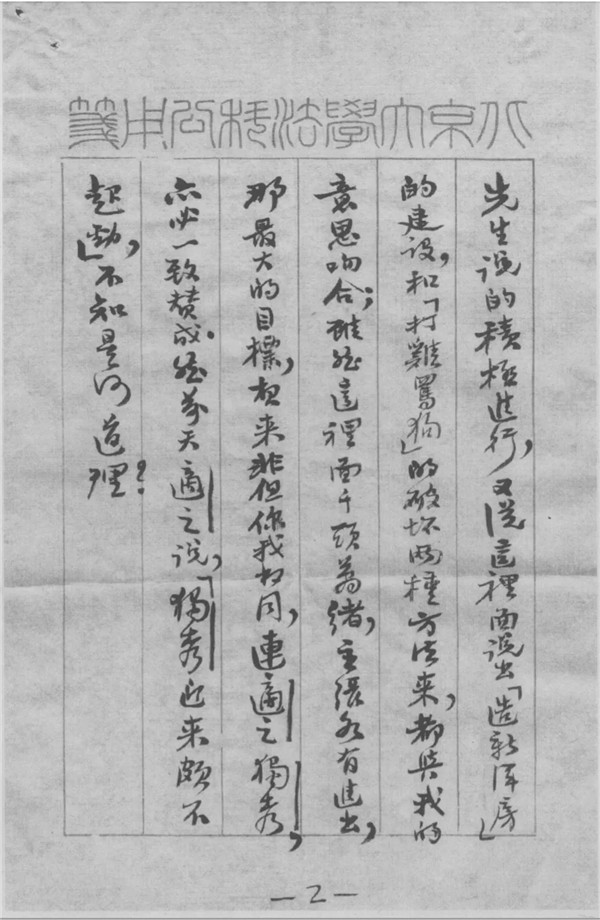 北京大學法科公用箋
先生说的積極進行，又说這裡面说出「造新洋房」
的建设，和「打雞罵狗」的破坏兩種方法来，都與我的
意思吻合；雖然這裡面千頭萬緒，主張各有進出，
那最大的目標，想来非但你我相同，連適之獨秀，
亦必一致赞成。然前天適之说，「獨秀近来颇不
起勁」，不知是何道理？
—2—